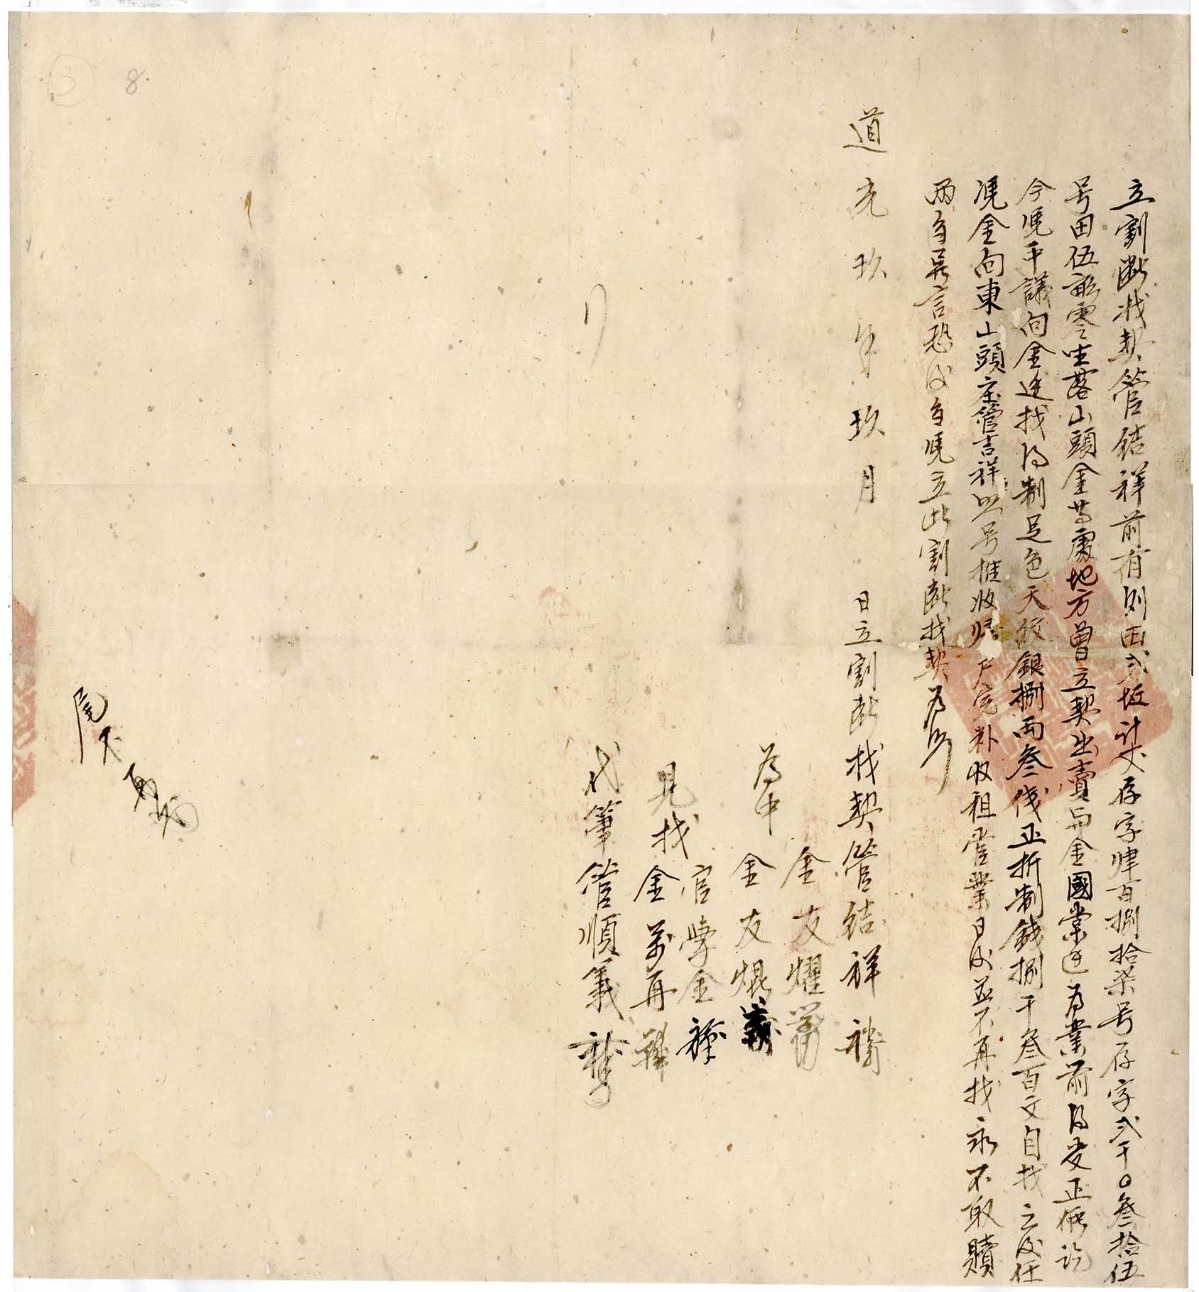 立割断找契管結祥前有則田弍坵計丈存字肆百捌拾柒号存字弍千〇叁拾伍
号田伍畝零坐落山頭金等處地方曾立契出賣与金國棠邊為業前得受正價訖
今凴中議向金邊找得制足色天紋銀捌両叁伐正折制錢捌千叁百文自找之後任
凴金向東山頭庄管吉祥照号推收歸戶完補收租管業日後並不再找永不取贖
両自無言恐後自凴立此割断找契為照
道光玖年玖月 日立割断找契管結祥
為中 金友耀
金友焜
見找 官學金
金萬再
代筆管順義
尾不再為
3 8